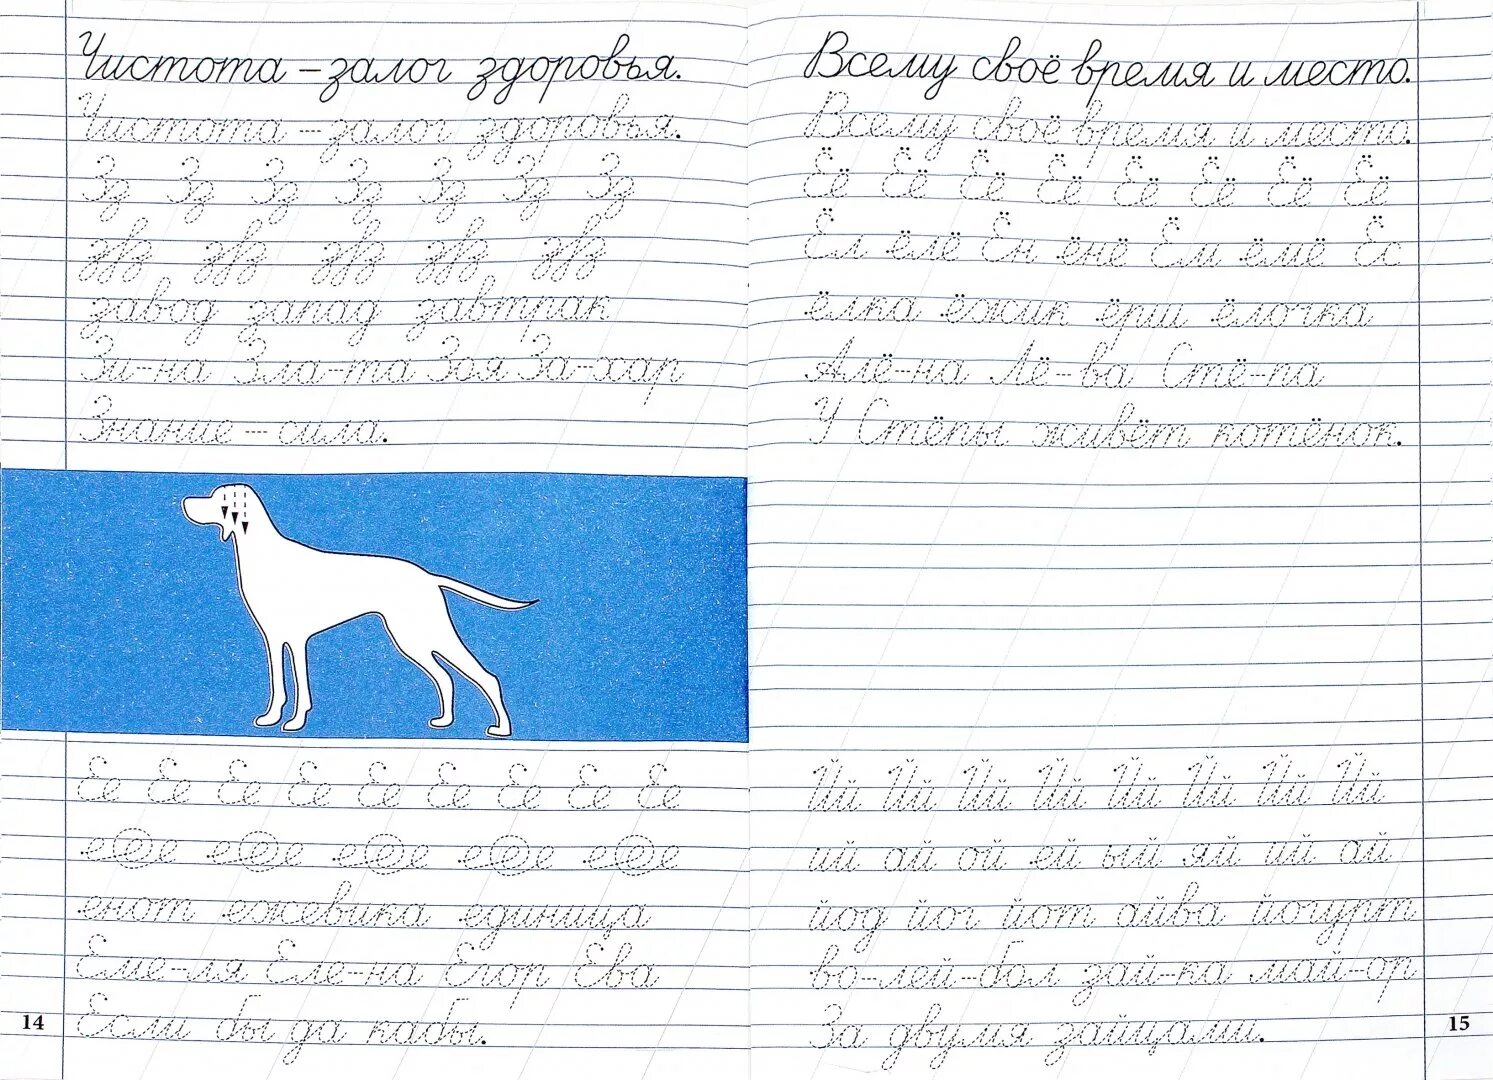 Чистота – залог здоровья.
Чистота – залог здоровья.
Зз Зз Зз Зз Зз Зз Зз
звз звз звз звз звз
завод запад завтрак
Зи-на Зла-та Зоя За-хар
Знание – сила.
Ее Ее Ее Ее Ее Ее Ее Ее Ее
еее еее еее еее еее
енот ежевика единица
Еме-ля Еле-на Егор Ева
Если бы да кабы.
14
Всему своё время и место.
Всему своё время и место.
Ёё Ёё Ёё Ёё Ёё Ёё Ёё Ёё
Ёл ёлё Ён ёнё Ём ёмё Ёс
ёлка ёжик ёрш ёлочка
Алё-на Лё-ва Стё-па
У Стёпы живёт котёнок.
Йй Йй Йй Йй Йй Йй Йй Йй
ий ай ой ей ый яй ий ай
йод йог йот айва йогурт
во-лей-бол зай-ка май-ор
За двумя зайцами.
15